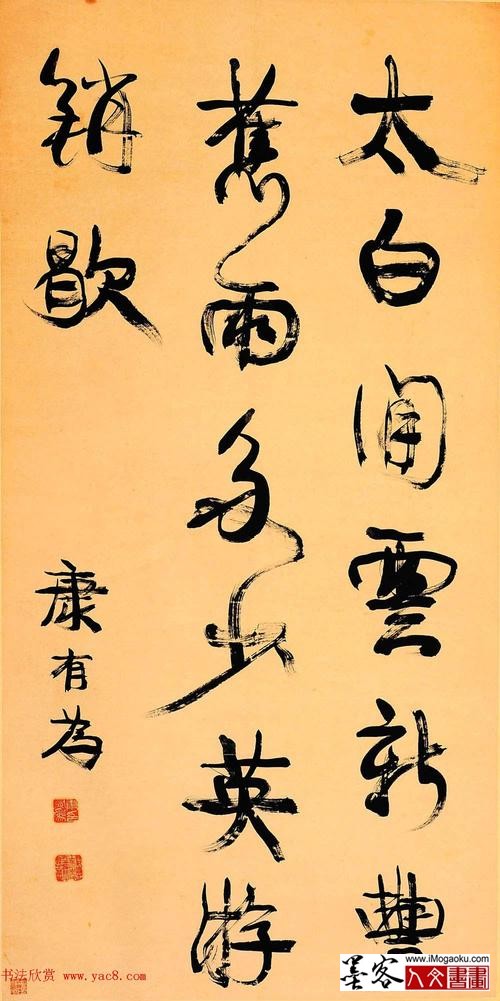 太白閒雲新豐
舊雨多少英游
銷歇
康有為
书法欣赏 www.yac8.com
墨客 www.iMogaoku.com
人文書畫